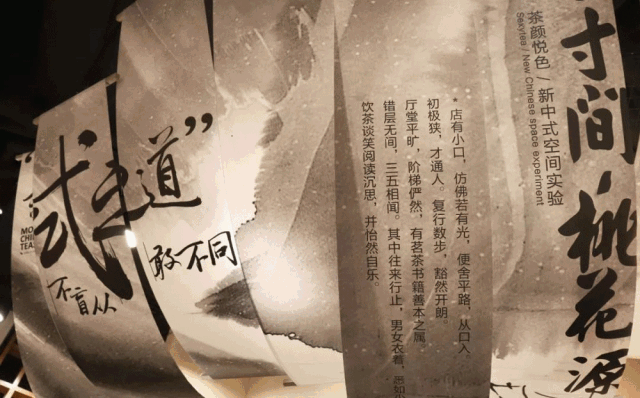 寸间，桃花源
茶颜悦色 / 新中式空间实验
Sexytea / New Chinese space experiment
*店有小口，仿佛若有光，便舍平路，从口入。
初极狭，才通人。复行数步，豁然开朗。
厅堂平旷，阶梯俨然，有茗茶书籍善本之属
错层无间，三五相闻。其中往来行止，男女衣着，悉如
饮茶谈笑阅读沉思，并怡然自乐。
道”
式
敢不同
不盲从
MO
CHI
TEA